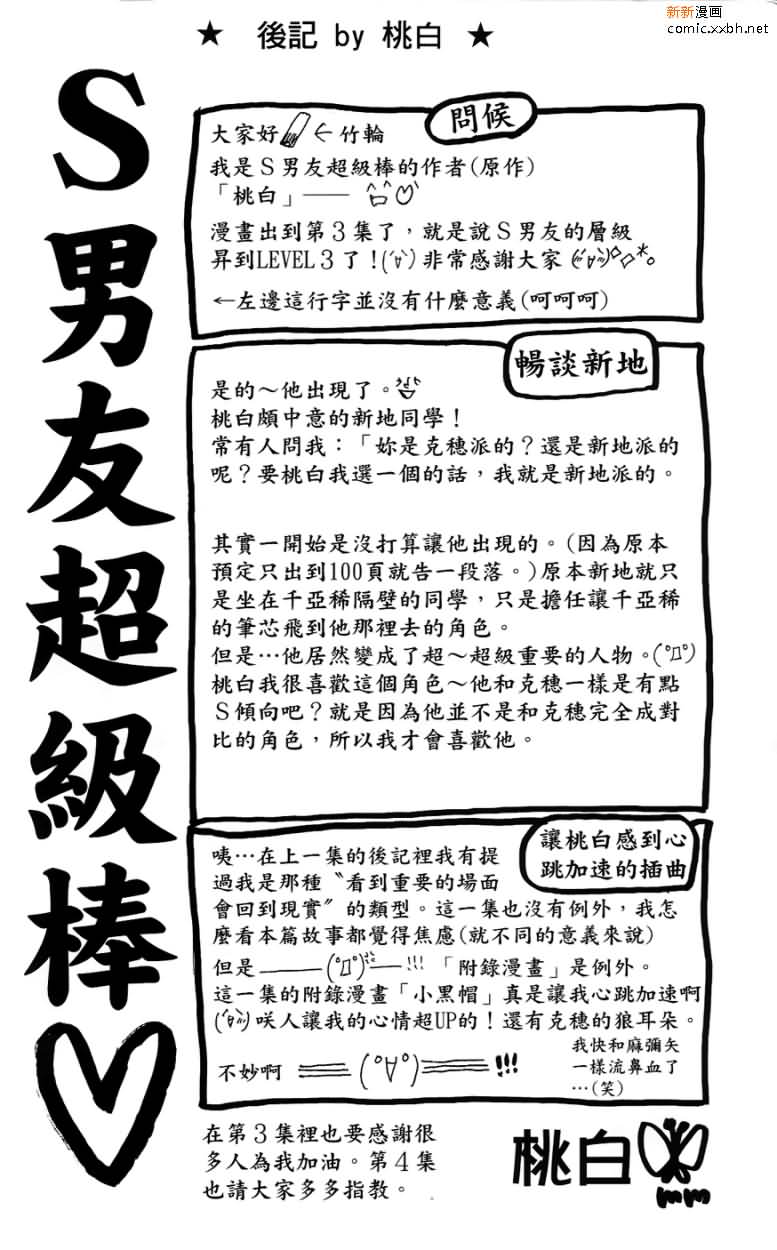 新新漫画
comic.xxbh.net
★ 後記 by 桃白 ★
S男友超級棒♡
問候
大家好 ←竹輪
我是S男友超級棒的作者(原作)
「桃白」——
漫畫出到第3集了,就是說S男友的層級
昇到LEVEL3了!(ˊ∀ˋ)非常感謝大家
←左邊這行字並沒有什麼意義(呵呵呵)
暢談新地
是的~他出現了。
桃白頗中意的新地同學!
常有人問我:「妳是克穗派的?還是新地派的
呢?要桃白我選一個的話,我就是新地派的。
其實一開始是沒打算讓他出現的。(因為原本
預定只出到100頁就告一段落。)原本新地就只
是坐在千亞稀隔壁的同學,只是擔任讓千亞稀
的筆芯飛到他那裡去的角色。
但是…他居然變成了超~超級重要的人物。(ﾟДﾟ)
桃白我很喜歡這個角色~他和克穗一樣是有點
S傾向吧?就是因為他並不是和克穗完全成對
比的角色,所以我才會喜歡他。
讓桃白感到心
跳加速的插曲
咦…在上一集的後記裡我有提
過我是那種〝看到重要的場面
會回到現實〞的類型。這一集也沒有例外,我怎
麼看本篇故事都覺得焦慮(就不同的意義來說)
但是——(ﾟДﾟ)—!!!「附錄漫畫」是例外。
這一集的附錄漫畫「小黑帽」真是讓我心跳加速啊
咲人讓我的心情超UP的!還有克穗的狼耳朵。
不妙啊 ===(ﾟ∀ﾟ)===!!!
我快和麻彌矢
一樣流鼻血了
…(笑)
在第3集裡也要感謝很
多人為我加油。第4集
也請大家多多指教。
桃白